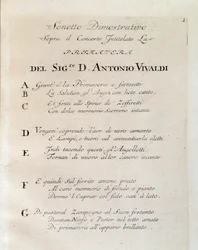 Sonetto Dimostrativo
Sopra il Concerto Intitolato La
PRIMAVERA
DEL SIG.re D. ANTONIO VIVALDI
A Giunt' è la Primavera e festosetti
B La Salutan gl' Augei con lieto canto,
C E i fonti allo Spirar de' Zeffiretti
Con dolce mormorio Scorrono intanto
D Vengon' coprendo l'aer di nero amanto
E Lampi, e tuoni ad annuntiarla eletti
E Indi tacendo questi, gl' Augelletti
Tornan di nuovo al lor canoro incanto
F E quindi sul fiorito ameno prato
Al caro mormorio di fronde e piante
Dorme 'l Caprar col fido can' à lato.
G Di pastoral Zampogna al Suon festante
Danzan Ninfe e Pastor nel tetto amato
Di primavera all' apparir brillante